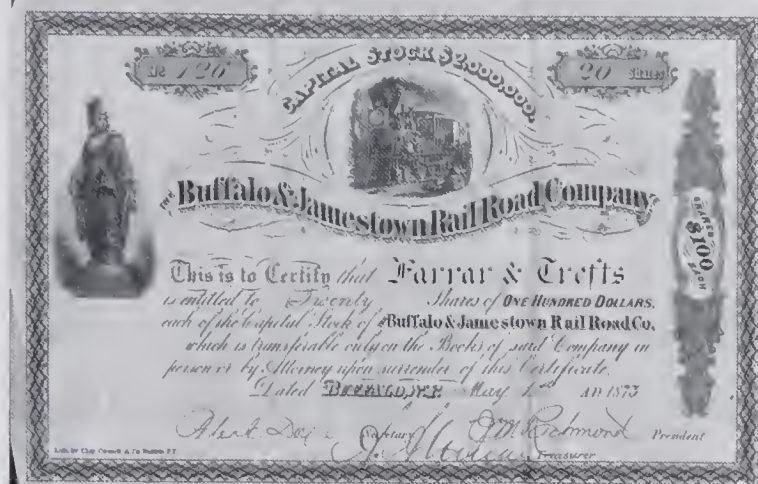 No 126
CAPITAL STOCK $2,000,000,
20 Shares
THE Buffalo & Jamestown Rail Road Company
SHARES $100 EACH
This is to Certify that Farrar & Trefts
is entitled to Twenty Shares of ONE HUNDRED DOLLARS,
each of the Capital Stock of the Buffalo & Jamestown Rail Road Co.
which is transferable only on the Books of said Company in
person or by Attorney upon surrender of this Certificate.
Dated BUFFALO, N.Y. May AD 1873
Secretary Richmond President
Treasurer
Lith. by Clay & Co Buffalo N.Y.